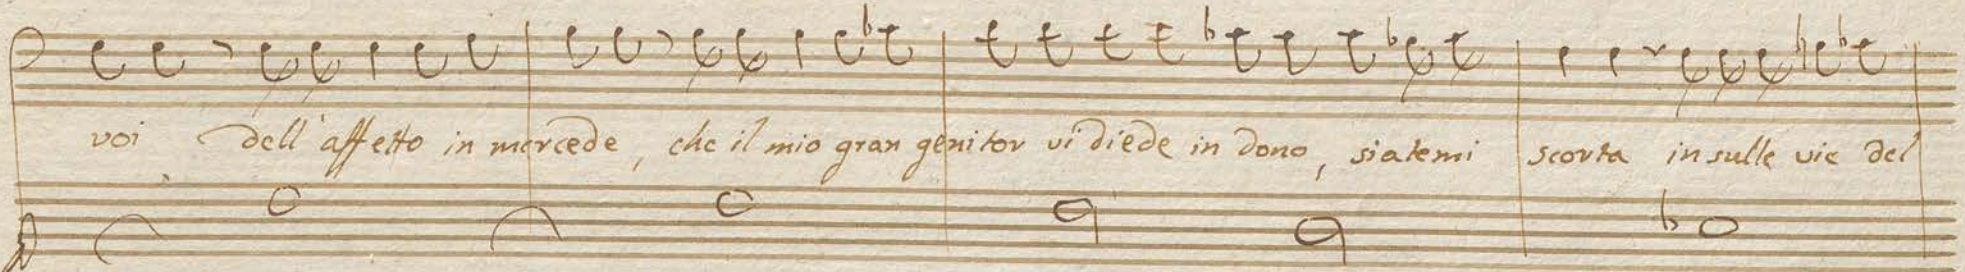 voi dell'affetto in mercede, che il mio gran genitor vi diede in dono, siatemi scorta in sulle vie del